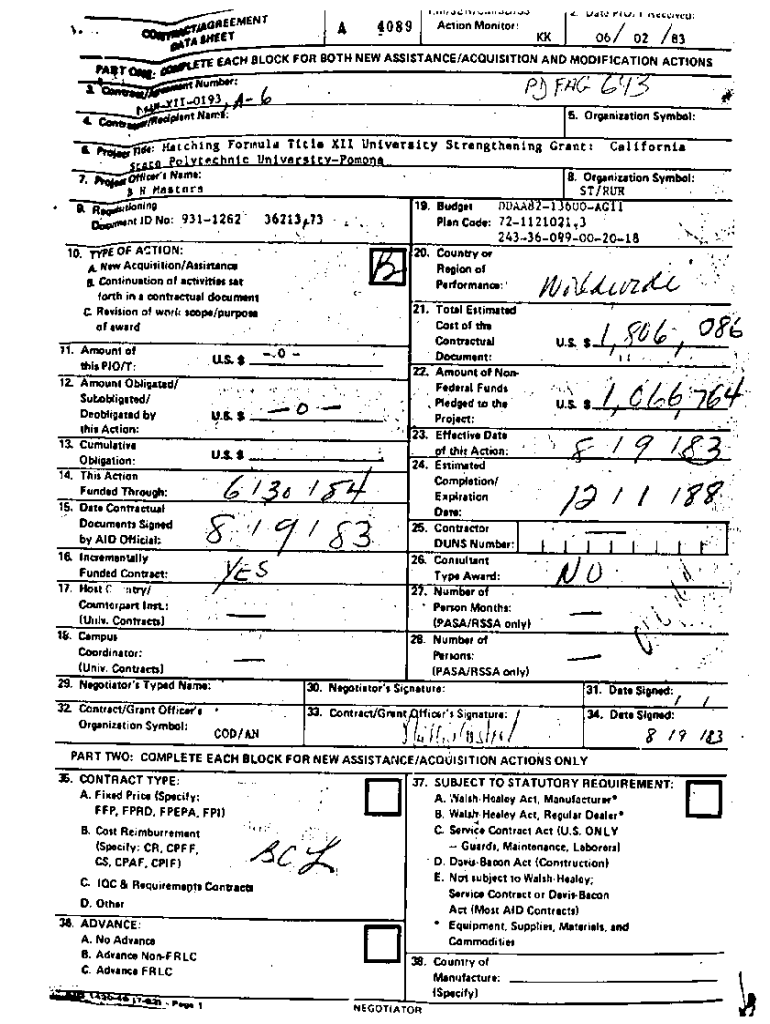 CONTRACT/AGREEMENT
DATA SHEET
A 4089
Action Monitor:
KK
2. Date PIO/T Received:
06/ 02 /83
PART ONE: COMPLETE EACH BLOCK FOR BOTH NEW ASSISTANCE/ACQUISITION AND MODIFICATION ACTIONS
3. Contract/Agreement Number:
XII-0193, A-6
PD FAG 643
4. Contractor/Recipient Name:
5. Organization Symbol:
6. Project Title: Matching Formula Title XII University Strengthening Grant: California
State Polytechnic University-Pomona
7. Project Officer's Name:
B H Masters
8. Organization Symbol:
ST/RUR
9. Requisitioning
Document ID No: 931-1262 36213,73
19. Budget DDAA82-13600-AG11
Plan Code: 72-1121021,3
243-36-099-00-20-18
10. TYPE OF ACTION:
A. New Acquisition/Assistance
B. Continuation of activities set
forth in a contractual document
C. Revision of work scope/purpose
of award
B
20. Country or
Region of
Performance: Worldwide
21. Total Estimated
Cost of the
Contractual
Document:
U.S. $ 1,806,086
11. Amount of
this PIO/T:
U.S. $ -0-
22. Amount of Non-
Federal Funds
Pledged to the
Project:
U.S. $ 1,066,764
12. Amount Obligated/
Subobligated/
Deobligated by
this Action:
U.S. $ -0-
13. Cumulative
Obligation:
U.S. $
23. Effective Date
of this Action: 8 19 183
14. This Action
Funded Through: 6130184
24. Estimated
Completion/
Expiration
Date: 1211188
15. Date Contractual
Documents Signed
by AID Official: 8 19 183
25. Contractor
DUNS Number:
16. Incrementally
Funded Contract: YES
26. Consultant
Type Award: NO
17. Host Country/
Counterpart Inst.:
(Univ. Contracts)
27. Number of
Person Months:
(PASA/RSSA only)
18. Campus
Coordinator:
(Univ. Contracts)
28. Number of
Persons:
(PASA/RSSA only)
29. Negotiator's Typed Name:
30. Negotiator's Signature:
31. Date Signed: / /
32. Contract/Grant Officer's
Organization Symbol:
COD/AN
33. Contract/Grant Officer's Signature:
34. Date Signed:
8 19 183
PART TWO: COMPLETE EACH BLOCK FOR NEW ASSISTANCE/ACQUISITION ACTIONS ONLY
35. CONTRACT TYPE:
A. Fixed Price (Specify:
FFP, FPRD, FPEPA, FPI)
B. Cost Reimburrement
(Specify: CR, CPFF,
CS, CPAF, CPIF)
C. IQC & Requirements Contracts
D. Other
36. ADVANCE:
A. No Advance
B. Advance Non-FRLC
C. Advance FRLC
37. SUBJECT TO STATUTORY REQUIREMENT:
A. Walsh-Healey Act, Manufacturer*
B. Walsh-Healey Act, Regular Dealer*
C. Service Contract Act (U.S. ONLY
– Guards, Maintenance, Laborers)
D. Davis-Bacon Act (Construction)
E. Not subject to Walsh-Healey;
Service Contract or Davis-Bacon
Act (Most AID Contracts)
* Equipment, Supplies, Materials, and
Commodities
38. Country of
Manufacture:
(Specify)
- Page 1
NEGOTIATOR